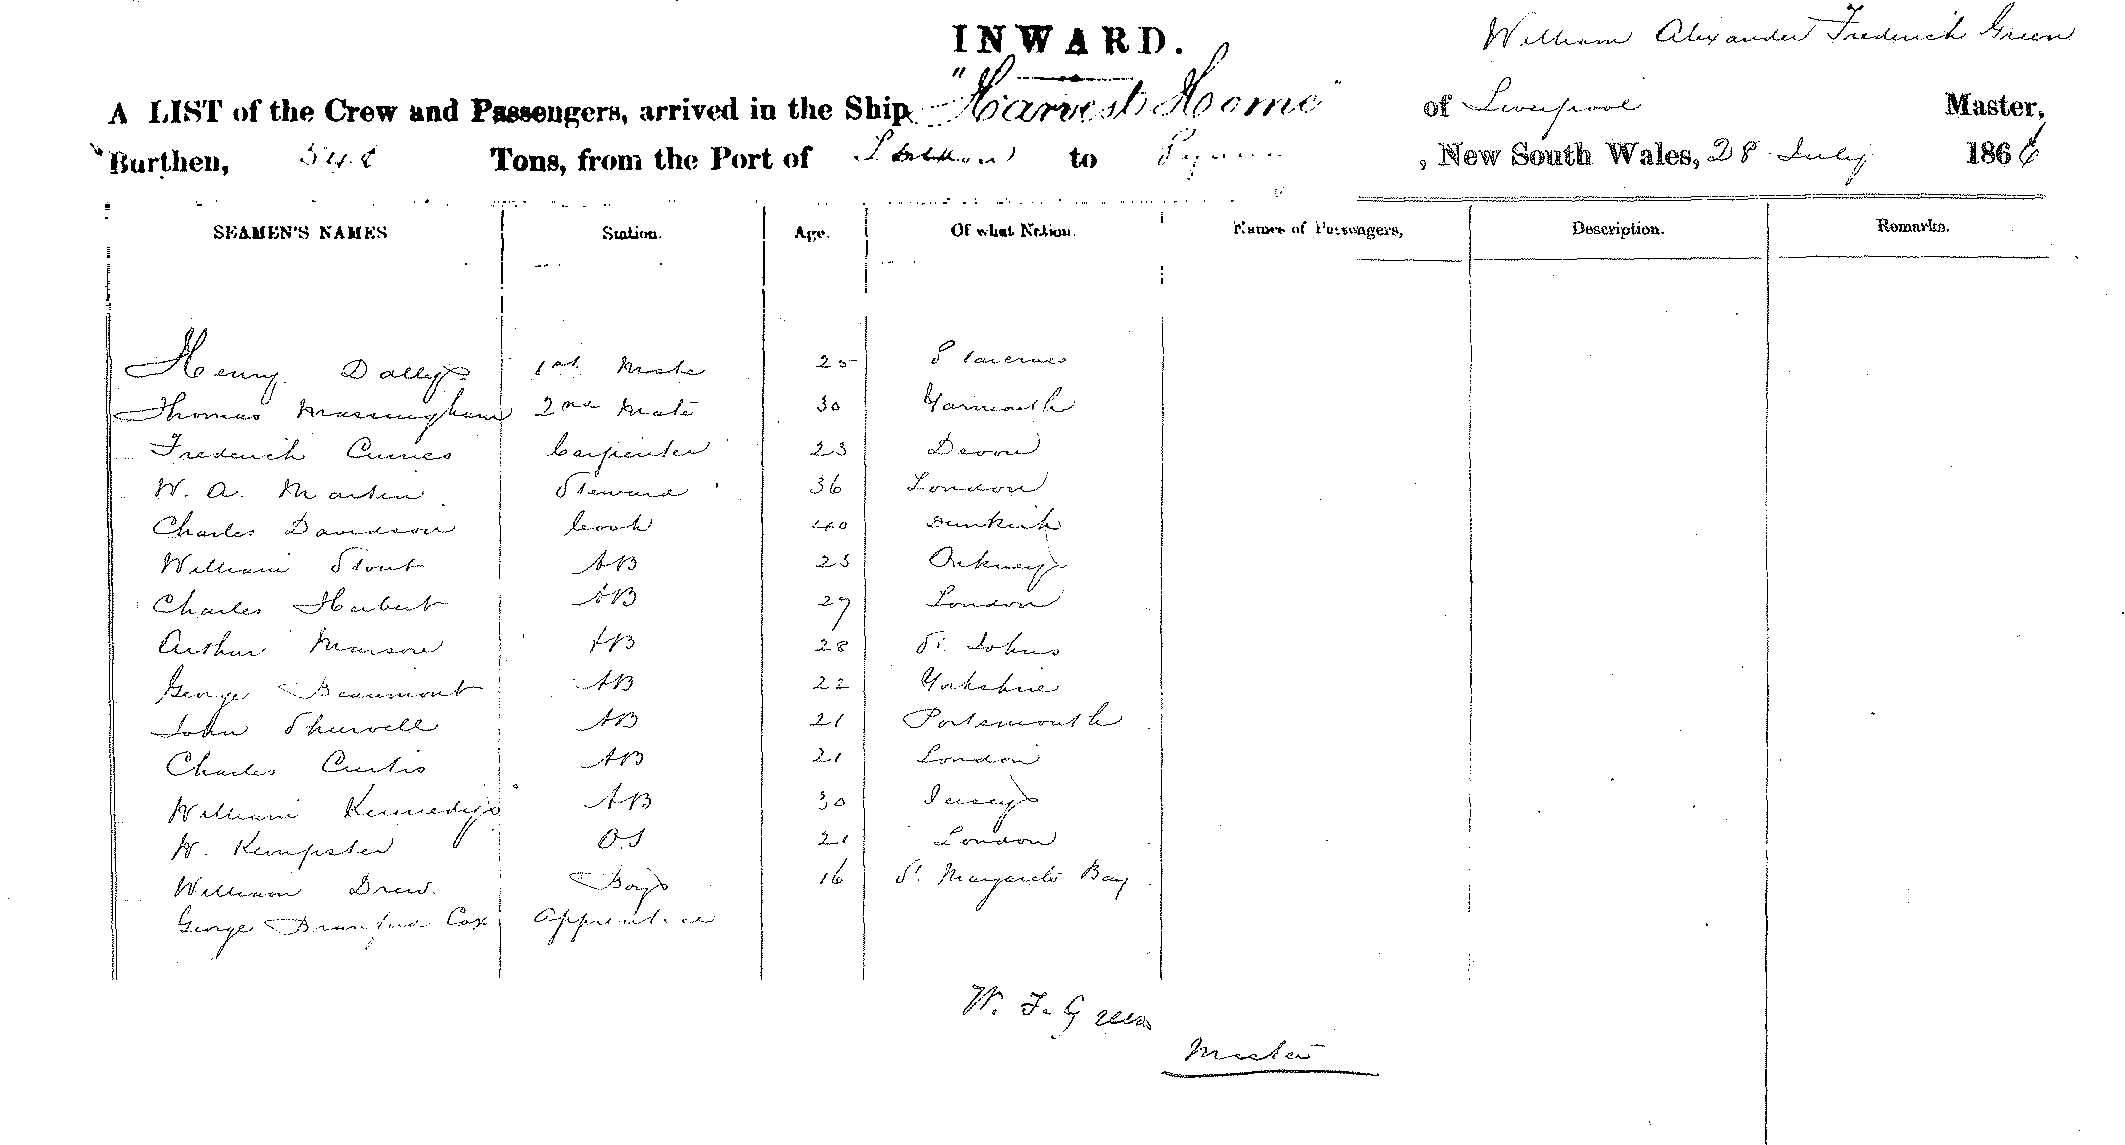 INWARD.
William Alexander Frederick Green
A LIST of the Crew and Passengers, arrived in the Ship "Harvest Home" of Liverpool Master,
Burthen, Tons, from the Port of London to , New South Wales, 28 July 1866
SEAMEN'S NAMES Station. Age. Of what Nation. Names of Passengers, Description. Remarks.
Henry Dally 1st Mate 25
Thomas Massingham 2nd Mate 30 Yarmouth
Frederick Carpenter 23 Devon
W. A. Martin Steward 36 London
Charles Davidson Cook 40 Dunkirk
William Stout AB 25 Orkney
Charles Herbert AB 29 London
Arthur AB 28 St. Johns
George Beaumont AB 22 Yorkshire
John AB 21 Portsmouth
Charles Curtis AB 21 London
William Kennedy AB 30 Jersey
W. Kempster OS 21 London
William Drew. Boy 16 St. Margarets Bay
George Cox Apprentice
W. F. Green
Master